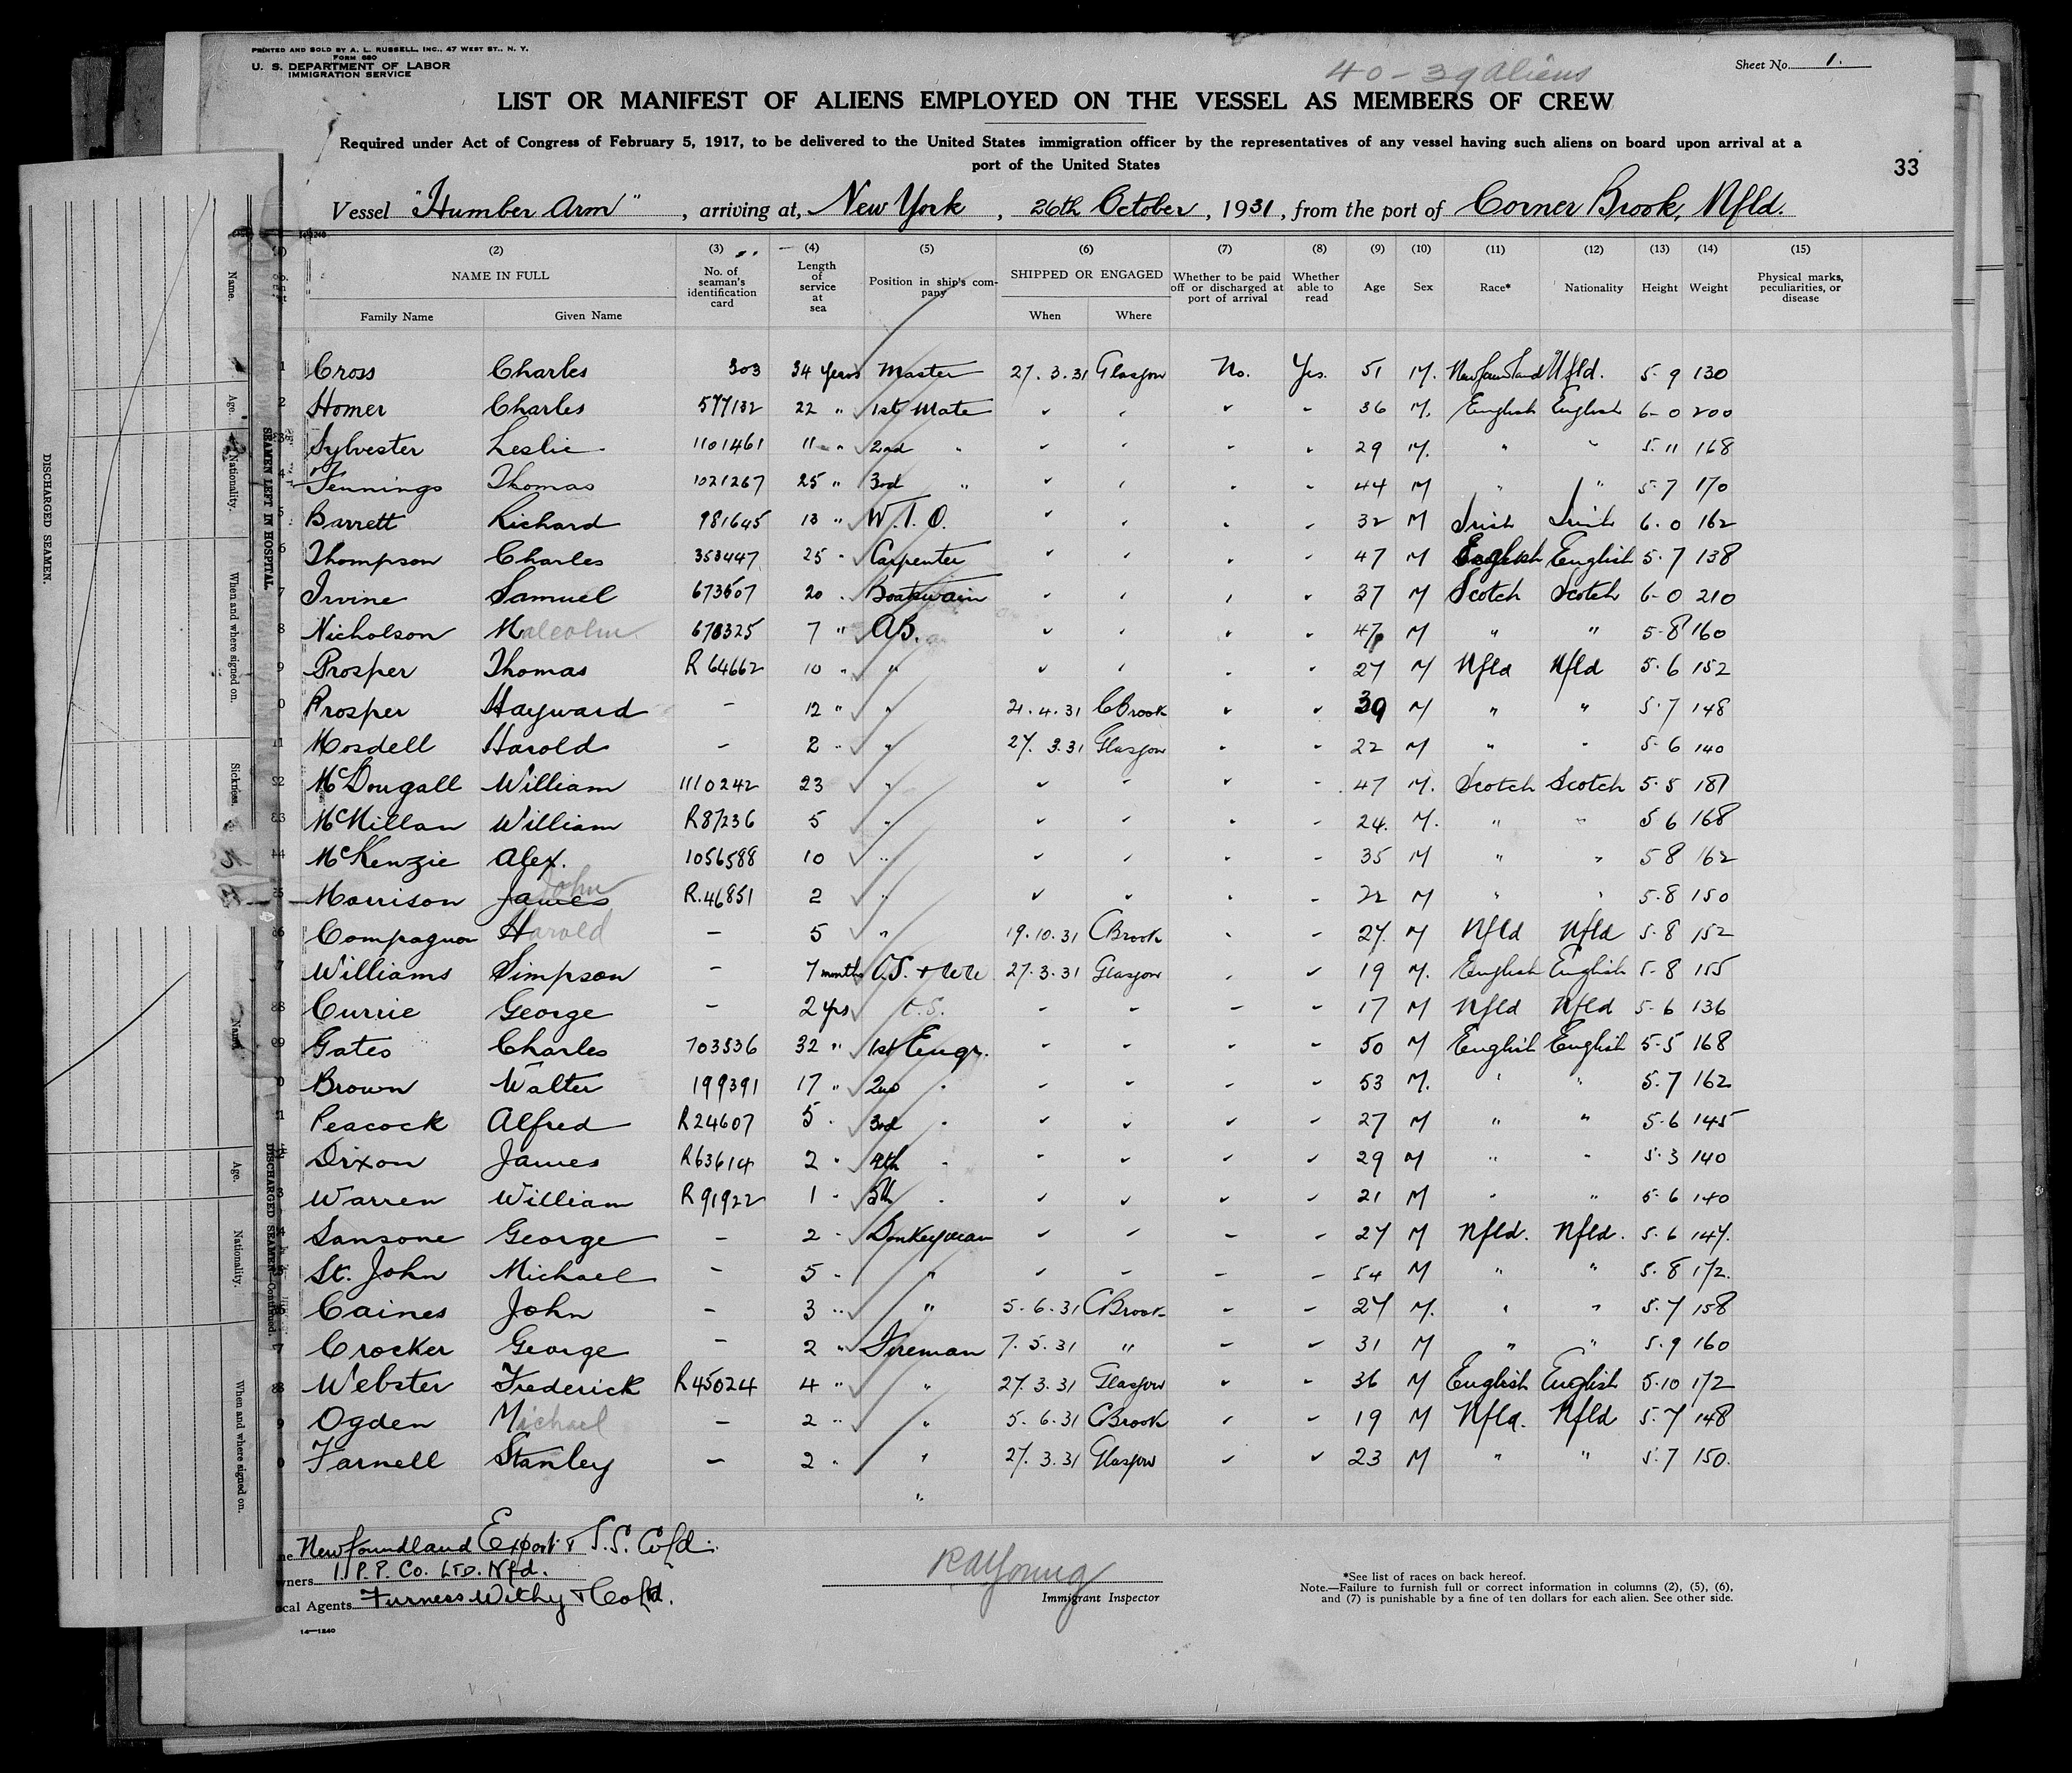 PRINTED AND SOLD BY A. L. RUSSELL, INC., 47 WEST ST., N. Y.
FORM 680
U. S. DEPARTMENT OF LABOR
IMMIGRATION SERVICE
40 - 39 aliens
Sheet No. 1.
LIST OR MANIFEST OF ALIENS EMPLOYED ON THE VESSEL AS MEMBERS OF CREW
Required under Act of Congress of February 5, 1917, to be delivered to the United States immigration officer by the representatives of any vessel having such aliens on board upon arrival at a
port of the United States
33
Vessel "Humber Arm", arriving at, New York, 26th October, 1931, from the port of Corner Brook, Nfld.
(2) (3) (4) (5) (6) (7) (8) (9) (10) (11) (12) (13) (14) (15)
NAME IN FULL Family Name Given Name
No. of seaman's identification card
Length of service at sea
Position in ship's company
SHIPPED OR ENGAGED When Where
Whether to be paid off or discharged at port of arrival
Whether able to read
Age Sex Race* Nationality Height Weight
Physical marks, peculiarities, or disease
Cross Charles 303 34 years Master 27.3.31 Glasgow No. Yes. 51 M. Newfoundland Nfld. 5-9 130
Homer Charles 577132 22 " 1st Mate 36 M. English English 6-0 200
Sylvester Leslie 1101461 11 " 2nd " 29 M. " " 5-11 168
Jennings Thomas 1021267 25 " 3rd " 44 M " " 5-7 170
Barrett Richard 981645 13 " W.T.O. 32 M Irish Irish 6-0 162
Thompson Charles 353447 25 " Carpenter 47 M English English 5-7 138
Irvine Samuel 673507 20 " Boatswain 37 M Scotch Scotch 6-0 210
Nicholson Malcolm 7 " AB. M " " 5-8 160
Prosper Thomas R 64662 10 " " 27 M Nfld Nfld 5-6 152
Prosper Hayward - 12 " " 21.4.31 CBrook 39 M " " 5-7 148
Mosdell Harold - 2 " " 27.3.31 Glasgow 22 M " " 5-6 140
McDougall William 1110242 23 " 47 M. Scotch Scotch 5-5 181
McMillan William R87236 5 " 24. M. " " 5 6 168
McKenzie Alex. 1056588 10 " 35 M " " 5 8 162
Morrison James John R.46851 2 " 22 M " " 5-8 150
Compagnon Harold - 5 " 19.10.31 CBrook 27. M Nfld Nfld 5-8 152
Williams Simpson - 7 months 27.3.31 Glasgow 19 M. English English 5-8 155
Currie George - 2 yrs O.S. 17 M Nfld Nfld 5-6 136
Gates Charles 703536 32 " 1st Engr. 50 M English English 5-5 168
Brown Walter 199391 17 " 2nd " 53 M. " " 5-7 162
Peacock Alfred R24607 5 " 3rd " 27 M " " 5-6 145
Dixon James R63614 2 " 4th " 29 M " " 5-3 140
Warren William R91922 1 " 5th " 21 M " " 5-6 140
Sansone George - 2 " Donkeyman 27 M Nfld. Nfld. 5-6 147.
St. John Michael - 5 " " 54 M " " 5-8 172.
Caines John - 3 " " 5.6.31 CBrook 27 M. " " 5-7 158
Crocker George - 2 " Fireman 7.5.31 " 31 M " " 5-9 160
Webster Frederick R45024 4 " " 27.3.31 Glasgow 36 M English English 5-10 172
Ogden Michael - 2 " " 5.6.31 CBrook 19 M Nfld. Nfld 5-7 148
Farnell Stanley - 2 " " 27.3.31 Glasgow 23 M " " 5-7 150.
Newfoundland Export & S.S. Co Ld.
wners I.P.P. Co. LTD. Nfd.
ocal Agents Furness Withy & Co Ltd.
Immigrant Inspector
*See list of races on back hereof.
Note.—Failure to furnish full or correct information in columns (2), (5), (6),
and (7) is punishable by a fine of ten dollars for each alien. See other side.
14—1240
DISCHARGED SEAMEN.
Name. Age. Nationality. When and where signed on. Sickness.
SEAMEN LEFT IN HOSPITAL
Name. Age. Nationality. When and where signed on.
DISCHARGED SEAMEN—Continued.